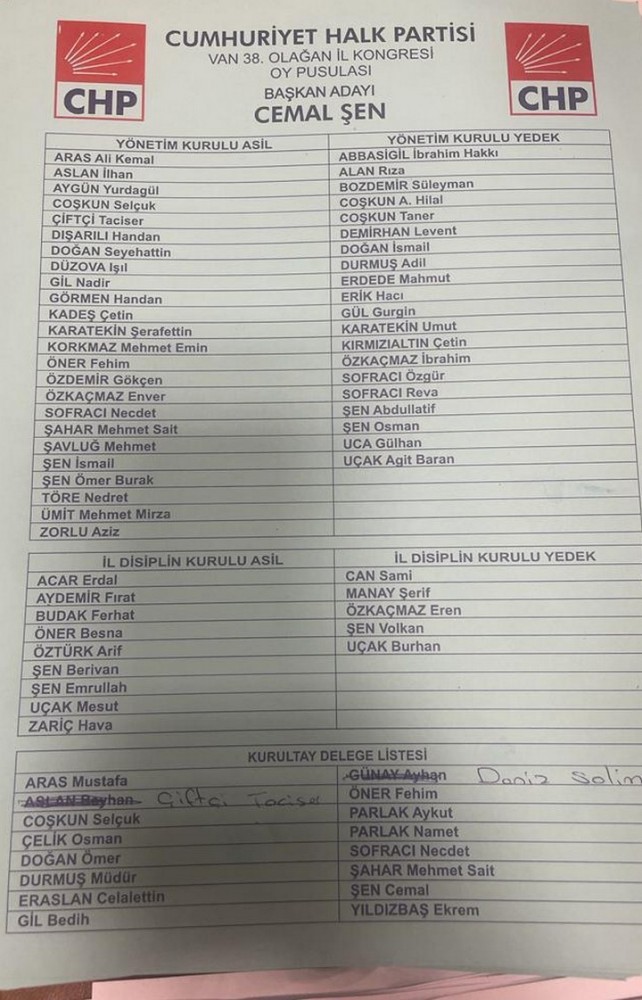 CUMHURİYET HALK PARTİSİ
VAN 38. OLAĞAN İL KONGRESİ
OY PUSULASI
BAŞKAN ADAYI
CEMAL ŞEN
CHP
CHP
YÖNETİM KURULU ASİL YÖNETİM KURULU YEDEK
ARAS Ali Kemal ABBASİGİL İbrahim Hakkı
ASLAN İlhan ALAN Rıza
AYGÜN Yurdagül BOZDEMİR Süleyman
COŞKUN Selçuk COŞKUN A. Hilal
ÇİFTÇİ Taciser COŞKUN Taner
DIŞARILI Handan DEMİRHAN Levent
DOĞAN Seyehattin DOĞAN İsmail
DÜZOVA Işıl DURMUŞ Adil
GİL Nadir ERDEDE Mahmut
GÖRMEN Handan ERİK Hacı
KADEŞ Çetin GÜL Gurgin
KARATEKİN Şerafettin KARATEKİN Umut
KORKMAZ Mehmet Emin KIRMIZIALTIN Çetin
ÖNER Fehim ÖZKAÇMAZ İbrahim
ÖZDEMİR Gökçen SOFRACI Özgür
ÖZKAÇMAZ Enver SOFRACI Reva
SOFRACI Necdet ŞEN Abdullatif
ŞAHAR Mehmet Sait ŞEN Osman
ŞAVLUĞ Mehmet UCA Gülhan
ŞEN İsmail UÇAK Agit Baran
ŞEN Ömer Burak
TÖRE Nedret
ÜMİT Mehmet Mirza
ZORLU Aziz
İL DİSİPLİN KURULU ASİL İL DİSİPLİN KURULU YEDEK
ACAR Erdal CAN Sami
AYDEMİR Fırat MANAY Şerif
BUDAK Ferhat ÖZKAÇMAZ Eren
ÖNER Besna ŞEN Volkan
ÖZTÜRK Arif UÇAK Burhan
ŞEN Berivan
ŞEN Emrullah
UÇAK Mesut
ZARİÇ Hava
KURULTAY DELEGE LİSTESİ
ARAS Mustafa GÜNAY Ayhan Deniz Salim
ASLAN Beyhan Çiftçi Taciser ÖNER Fehim
COŞKUN Selçuk PARLAK Aykut
ÇELİK Osman PARLAK Namet
DOĞAN Ömer SOFRACI Necdet
DURMUŞ Müdür ŞAHAR Mehmet Sait
ERASLAN Celalettin ŞEN Cemal
GİL Bedih YILDIZBAŞ Ekrem